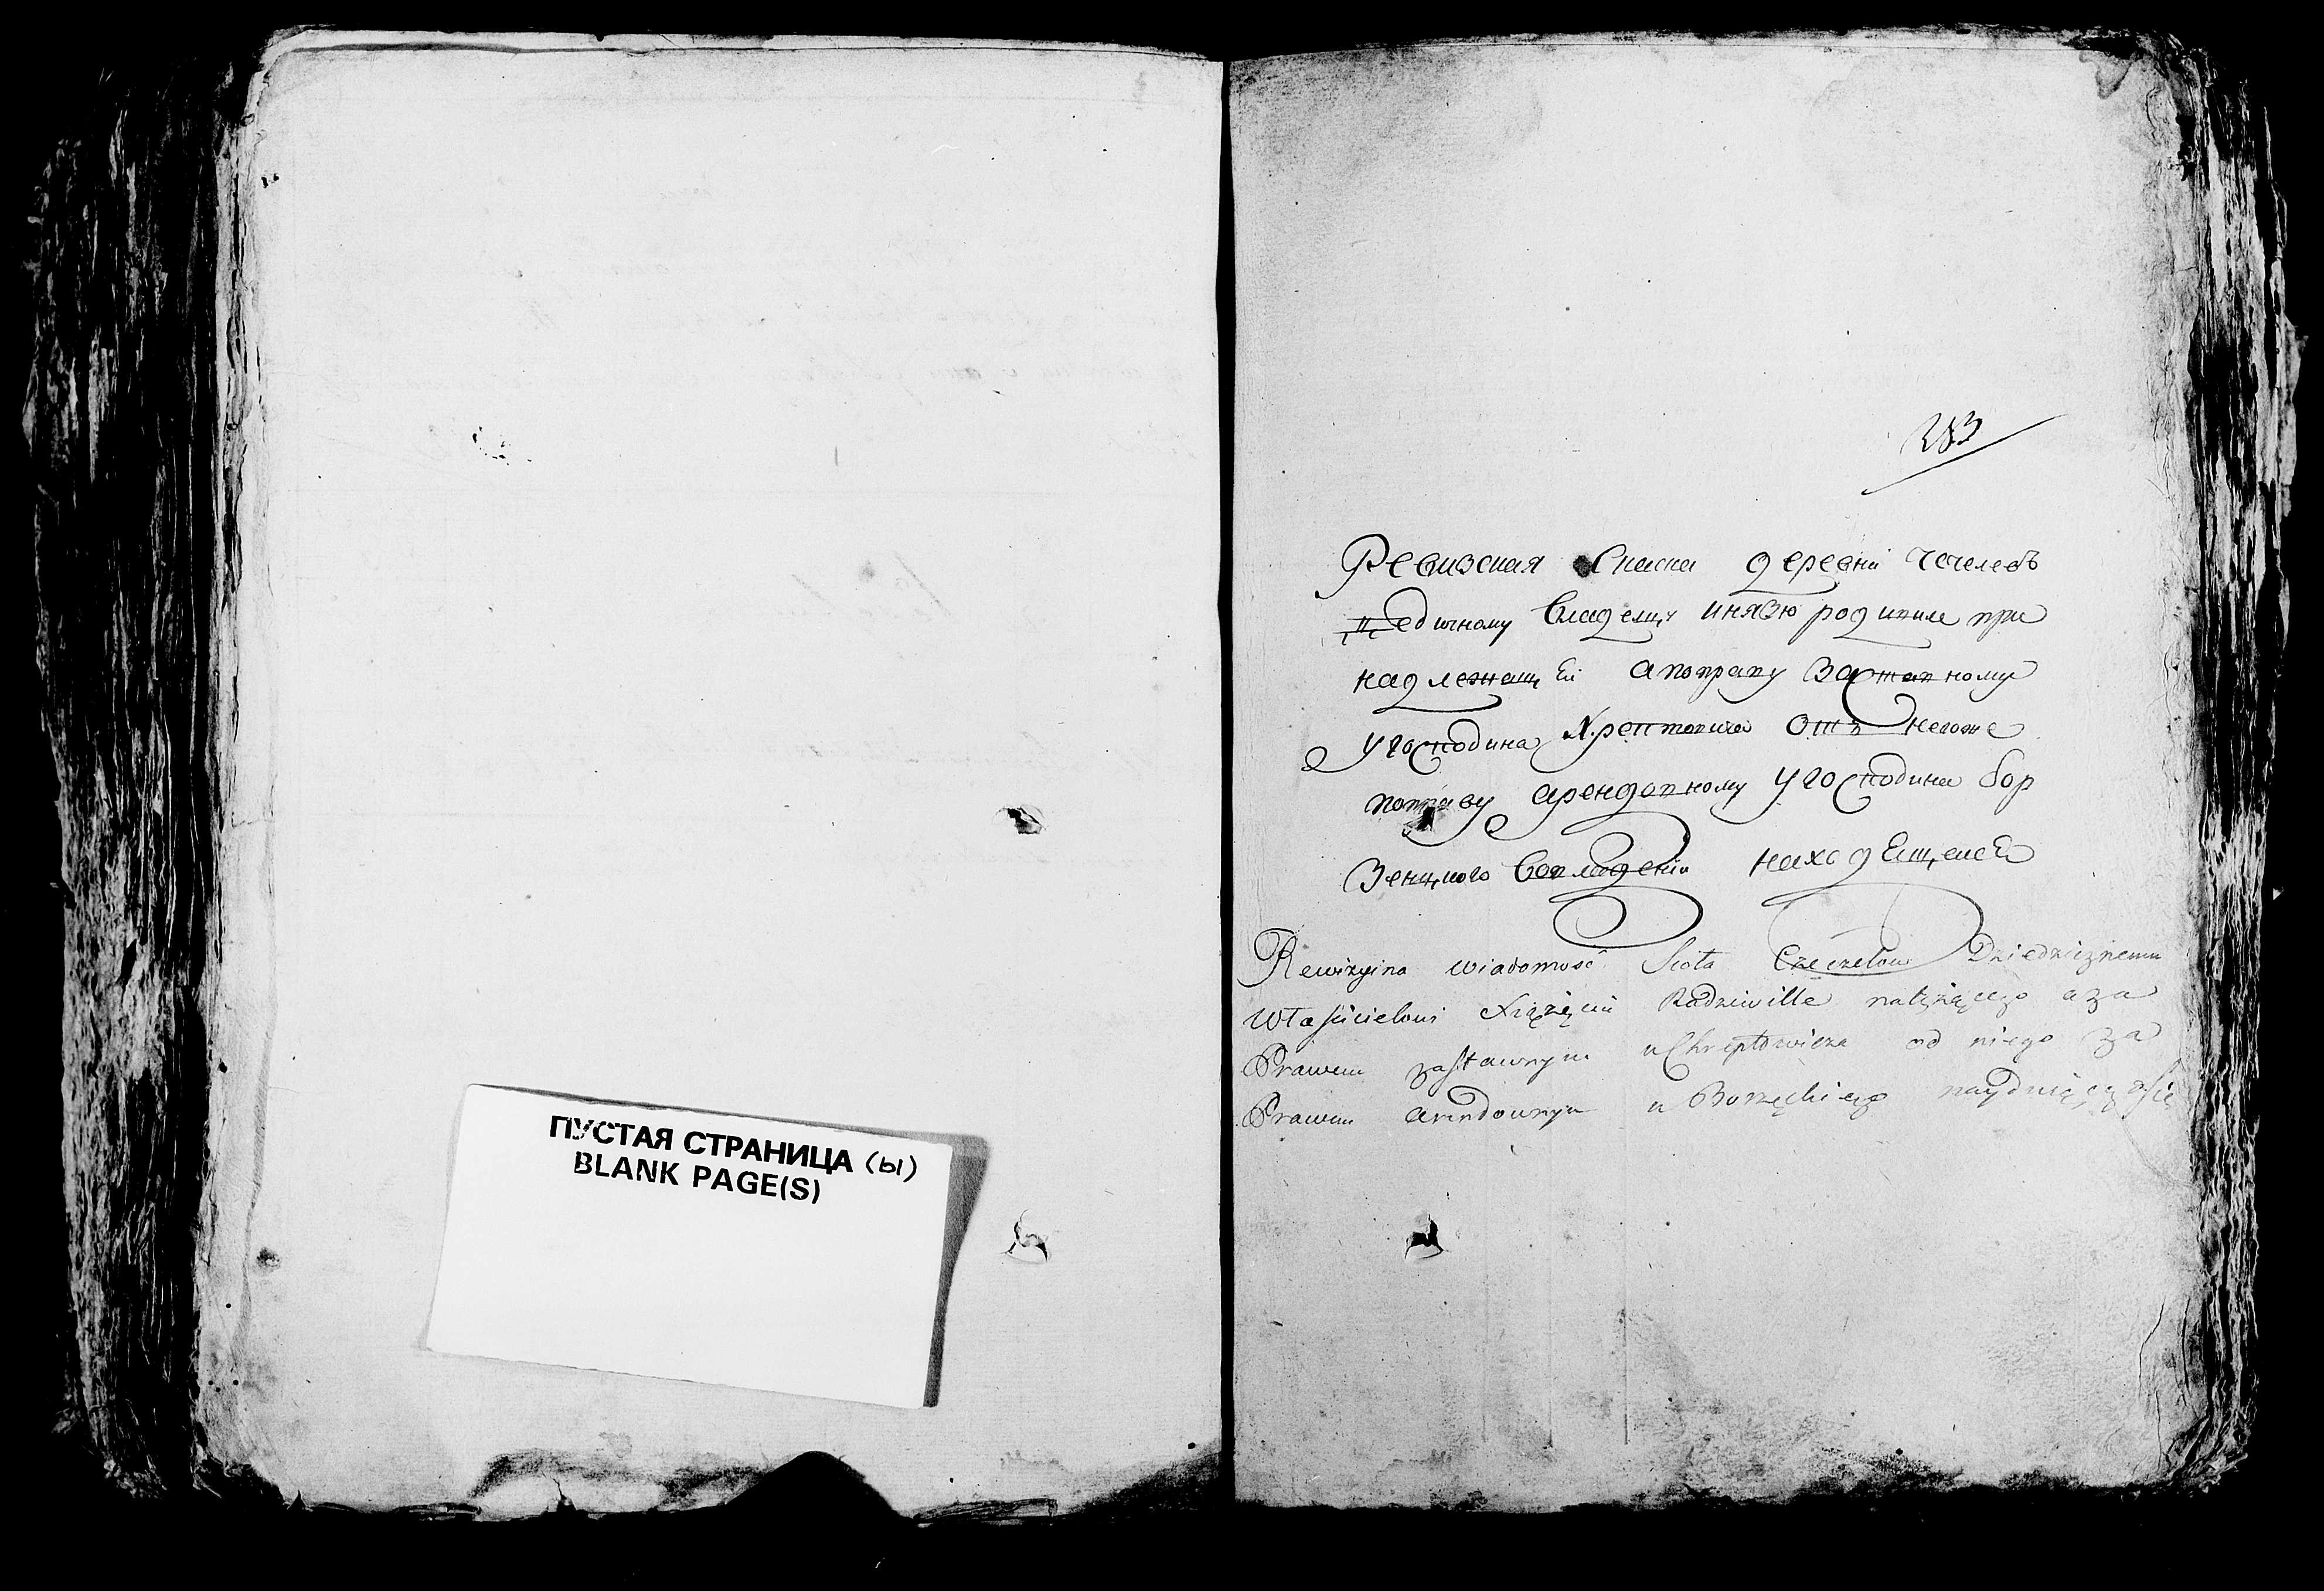 ПУСТАЯ СТРАНИЦА (ы)
BLANK PAGE(S)
283
Ревизская Скаска деревни Чечелевъ
едичному владелцу князю родивиле при
надлежащей а поправу Заставному
у господина Хрептовича Отъ негоже
поправу арендовному у господина бор
Зенцкого Вовладении находещейсе
Rewizyina wiadomość Sioła Czeczelowi Dziedzicznemu
Właścicielowi Xiążęciu Radziwille należącego a za
Prawem zastawnym u Chreptowicza od niego za
Prawem Arendownym u Borzęckiego nayduiącego się